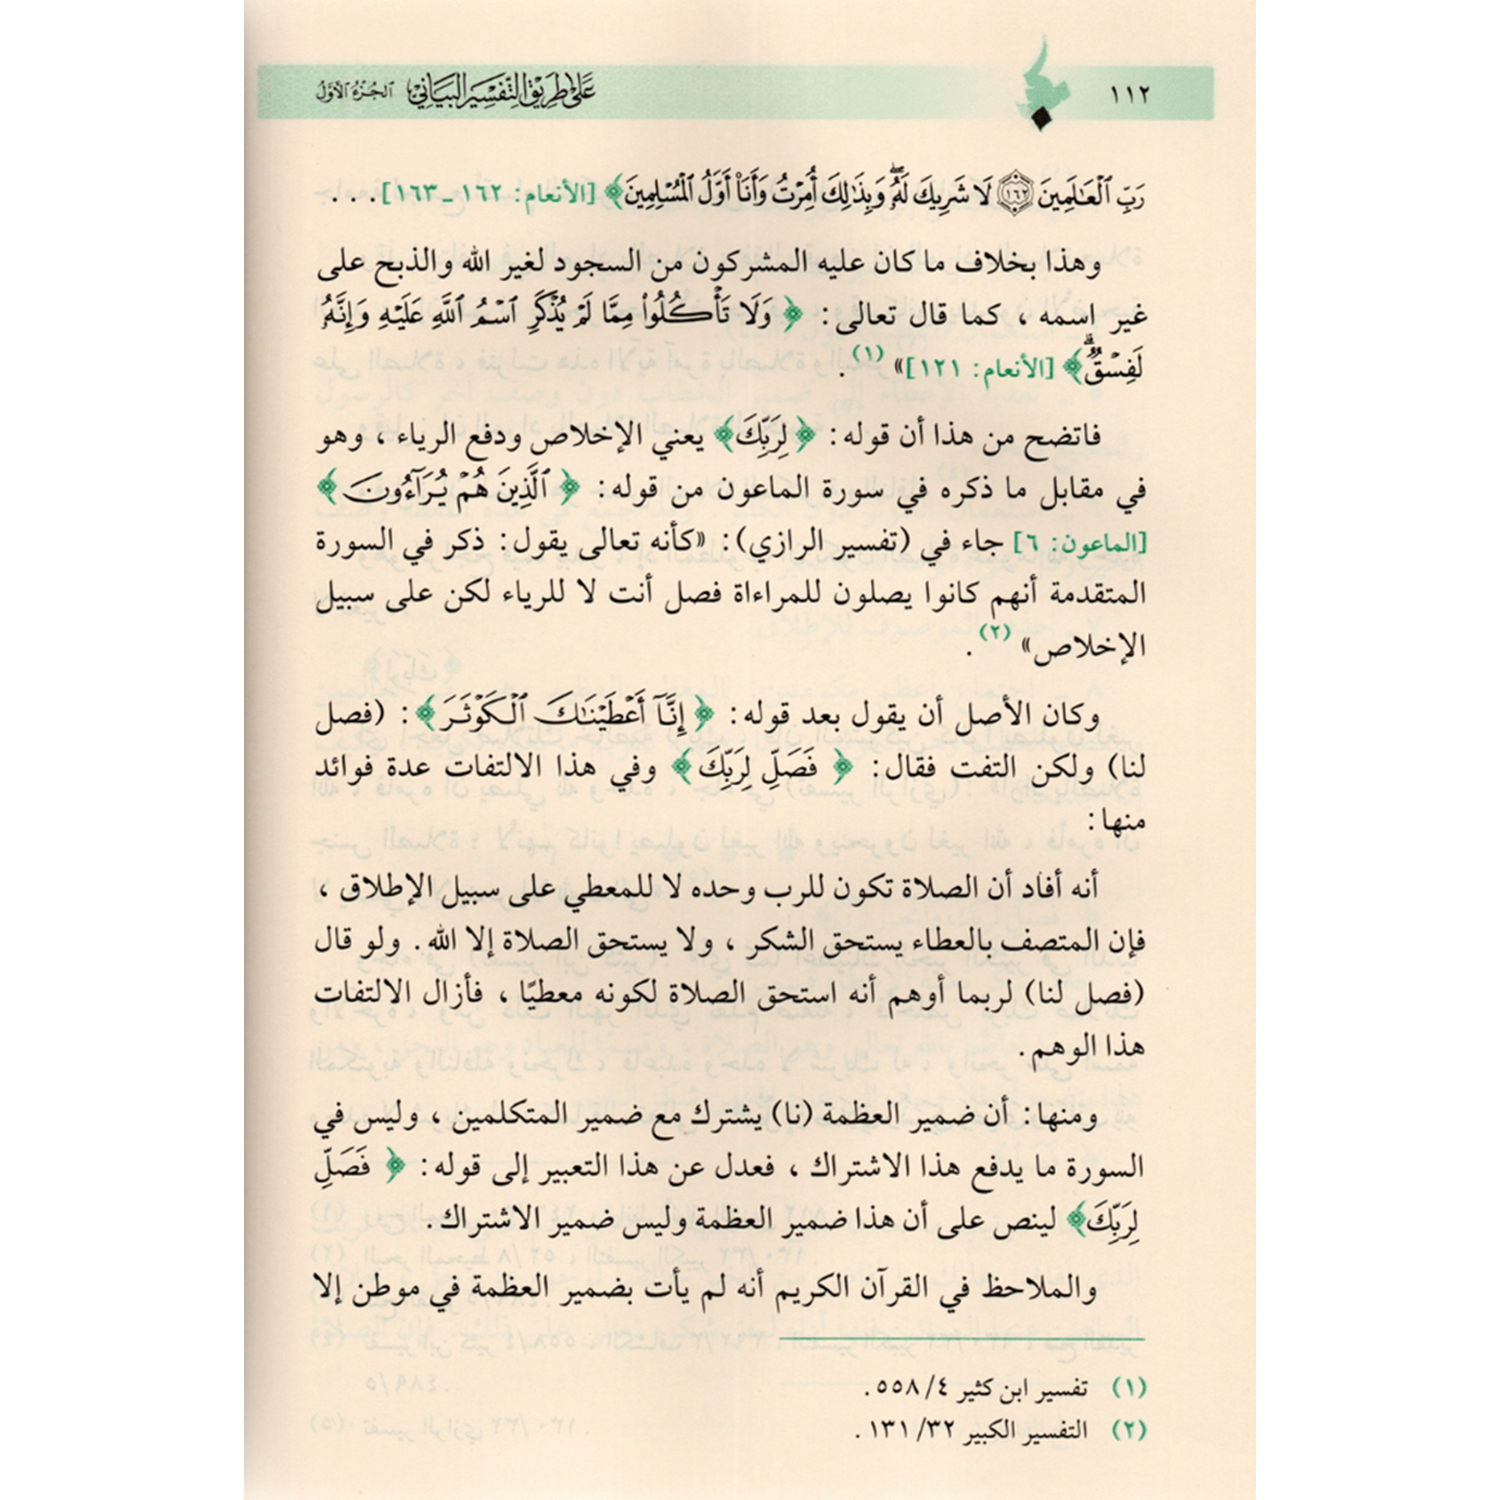 ١١٢ على طريق التفسير البياني الجزء الأول
رَبِّ ٱلْعَٰلَمِينَ ١٦٢ لَا شَرِيكَ لَهُۥۖ وَبِذَٰلِكَ أُمِرْتُ وَأَنَا۠ أَوَّلُ ٱلْمُسْلِمِينَ﴾ [الأنعام: ١٦٢ ـ ١٦٣] . . .
وهذا بخلاف ما كان عليه المشركون من السجود لغير الله والذبح على
غير اسمه ، كما قال تعالى: ﴿ وَلَا تَأْكُلُوا۟ مِمَّا لَمْ يُذْكَرِ ٱسْمُ ٱللَّهِ عَلَيْهِ وَإِنَّهُۥ
لَفِسْقٌۗ﴾ [الأنعام: ١٢١]» (١) .
فاتضح من هذا أن قوله: ﴿ لِرَبِّكَ﴾ يعني الإخلاص ودفع الرياء ، وهو
في مقابل ما ذكره في سورة الماعون من قوله: ﴿ ٱلَّذِينَ هُمْ يُرَآءُونَ﴾
[الماعون: ٦] جاء في (تفسير الرازي): «كأنه تعالى يقول: ذكر في السورة
المتقدمة أنهم كانوا يصلون للمراءاة فصل أنت لا للرياء لكن على سبيل
الإخلاص» (٢) .
وكان الأصل أن يقول بعد قوله: ﴿ إِنَّآ أَعْطَيْنَٰكَ ٱلْكَوْثَرَ﴾: (فصل
لنا) ولكن التفت فقال: ﴿ فَصَلِّ لِرَبِّكَ﴾ وفي هذا الالتفات عدة فوائد
منها:
أنه أفاد أن الصلاة تكون للرب وحده لا للمعطي على سبيل الإطلاق ،
فإن المتصف بالعطاء يستحق الشكر ، ولا يستحق الصلاة إلا الله. ولو قال
(فصل لنا) لربما أوهم أنه استحق الصلاة لكونه معطيًا ، فأزال الالتفات
هذا الوهم.
ومنها: أن ضمير العظمة (نا) يشترك مع ضمير المتكلمين ، وليس في
السورة ما يدفع هذا الاشتراك ، فعدل عن هذا التعبير إلى قوله: ﴿ فَصَلِّ
لِرَبِّكَ﴾ لينص على أن هذا ضمير العظمة وليس ضمير الاشتراك.
والملاحظ في القرآن الكريم أنه لم يأت بضمير العظمة في موطن إلا
(١) تفسير ابن كثير ٤/ ٥٥٨ .
(٢) التفسير الكبير ٣٢/ ١٣١ .